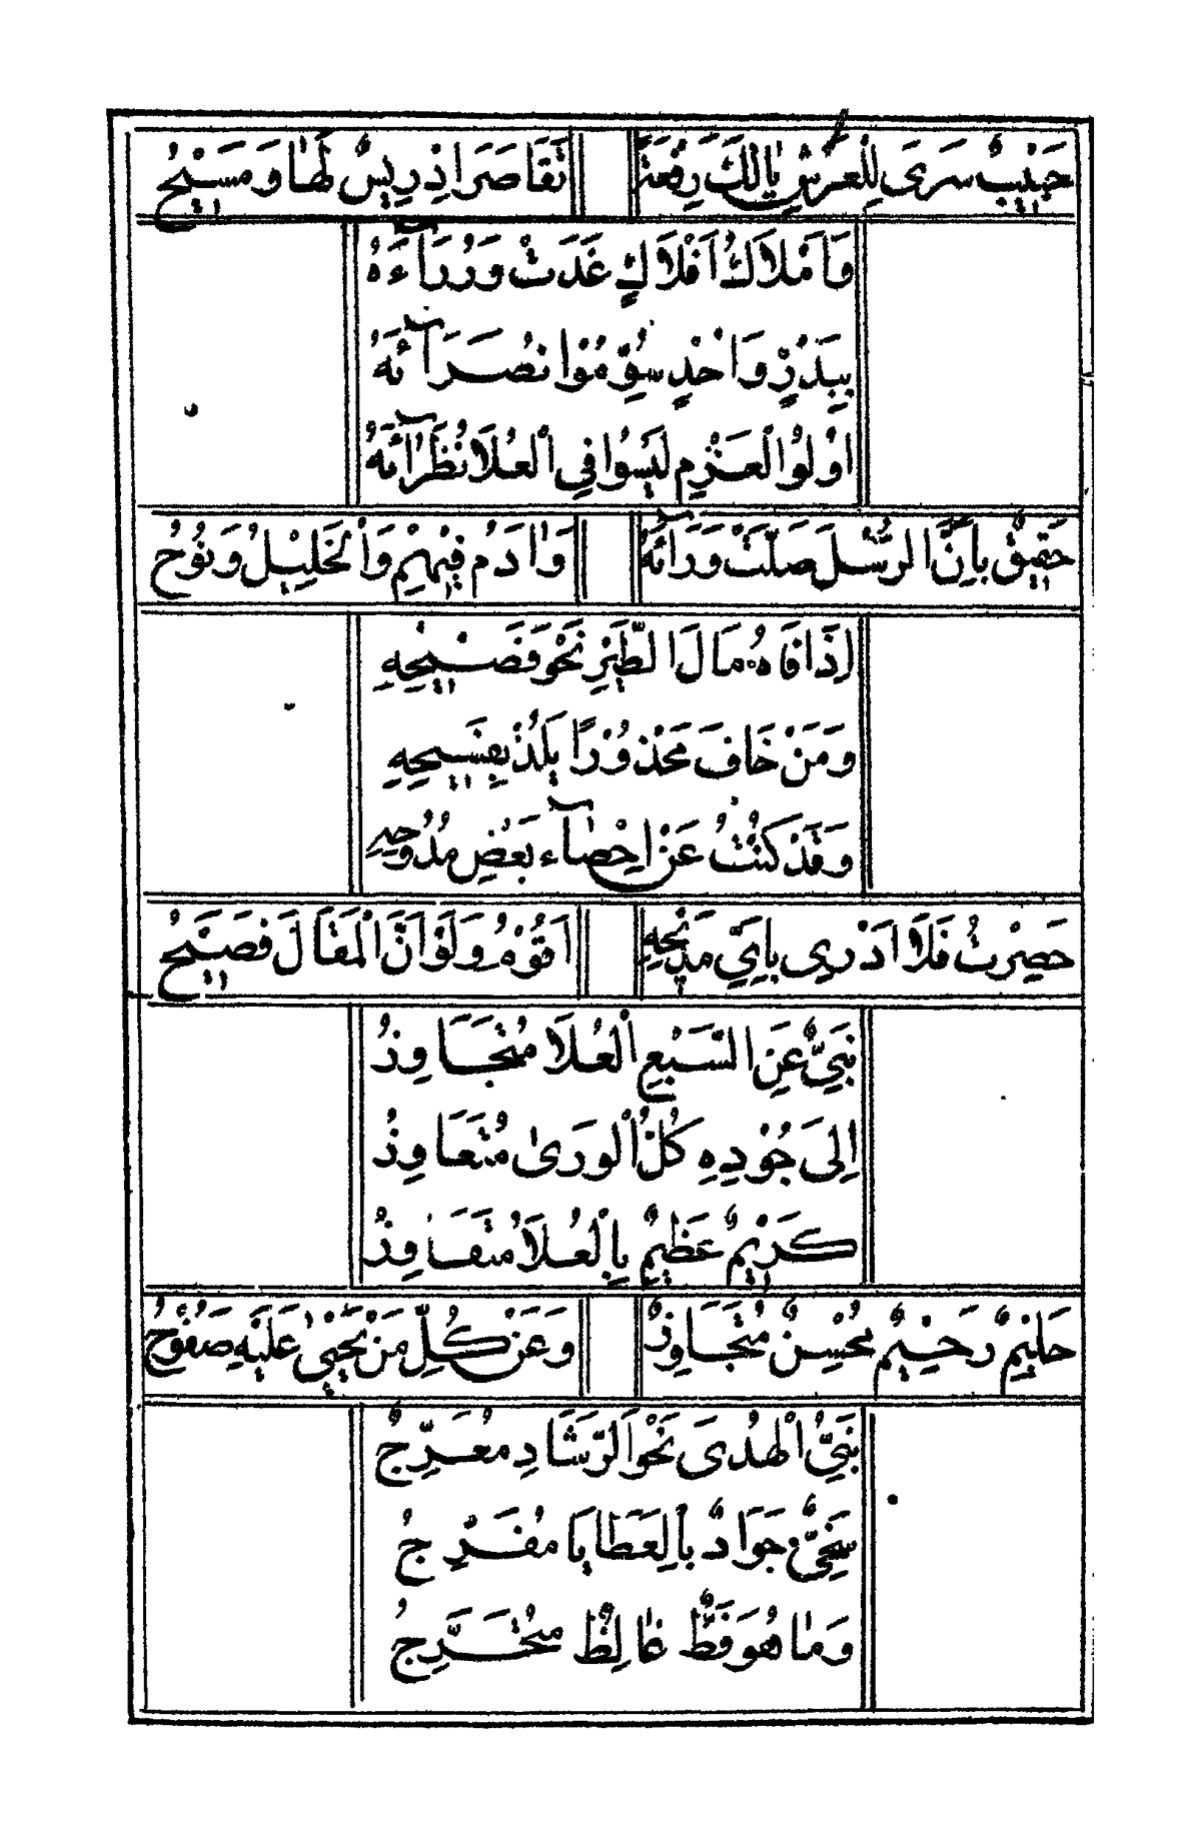 حَبِيْبٌ سَرَى لِلْعَرْشِ يَالَكَ رِفْعَةً تَقَاصَرَ اِدْرِيسٌ لَهَا وَمَسِيْحُ
وَاَمْلَاكُ اَفْلَاكٍ غَدَتْ وَرُرَآءَهُ
بِبَدْرٍ وَاُحْدٍ سُوِّمُوْا نُصَرَآئَهُ
اُوْلُوا الْعَزْمِ لَيْسُوْا فِي الْعُلَا نُظَرَآئَهُ
حَقِيْقٌ بِاَنَّ الرُّسْلَ صَلَّتْ وَرَآئَهُ وَاٰدَمُ فِيْهِمْ وَالْخَلِيْلُ وَنُوْحُ
اِذَا فَاهُ مَالَ الطَّيْرِ نَحْوَ فَصِيْحِهِ
وَمَنْ خَافَ مَحْذُوْرًا يَلُذْ بِفَسِيْحِهِ
وَقَدْ كُنْتُ عَنْ اِحْصَآءِ بَعْضِ مُدُوْحِهِ
حَصِرْتُ فَلَا اَدْرِى بِاَيِّ مَدِيْحِهِ اَقُوْمُ وَلَوْ اَنَّ الْمَقَالَ فَصِيْحُ
نَبِيٌّ عَنِ السَّبْعِ الْعُلَا مُتَجَاوِزُ
اِلَى جُوْدِهِ كُلُّ الْوَرَىٰ مُتَعَاوِزُ
كَرِيْمٌ عَظِيْمٌ بِالْعُلَا مُتَفَاوِزُ
حَلِيْمٌ رَحِيْمٌ مُحْسِنٌ مُتَجَاوِزٌ وَعَنْ كُلِّ مَنْ يَجْنِيْ عَلَيْهِ صَفُوْحُ
نَبِيُّ الْهُدَى نَحْوَ الرَّشَادِ مُعَرِّجُ
سَخِيٌّ جَوَادٌ بِالْعَطَايَا مُفَرِّجُ
وَمَا هُوَ فَظٌّ غَالِظٌ مُتَحَرِّجُ